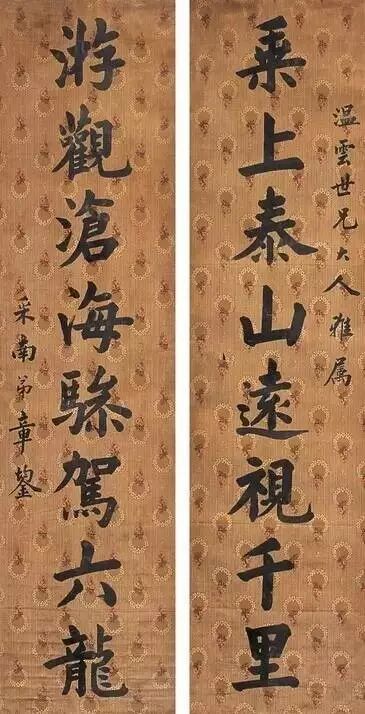 温雲世兄大人雅屬
乗上泰山遠視千里
游觀滄海驂駕六龍
采南弟章鋆